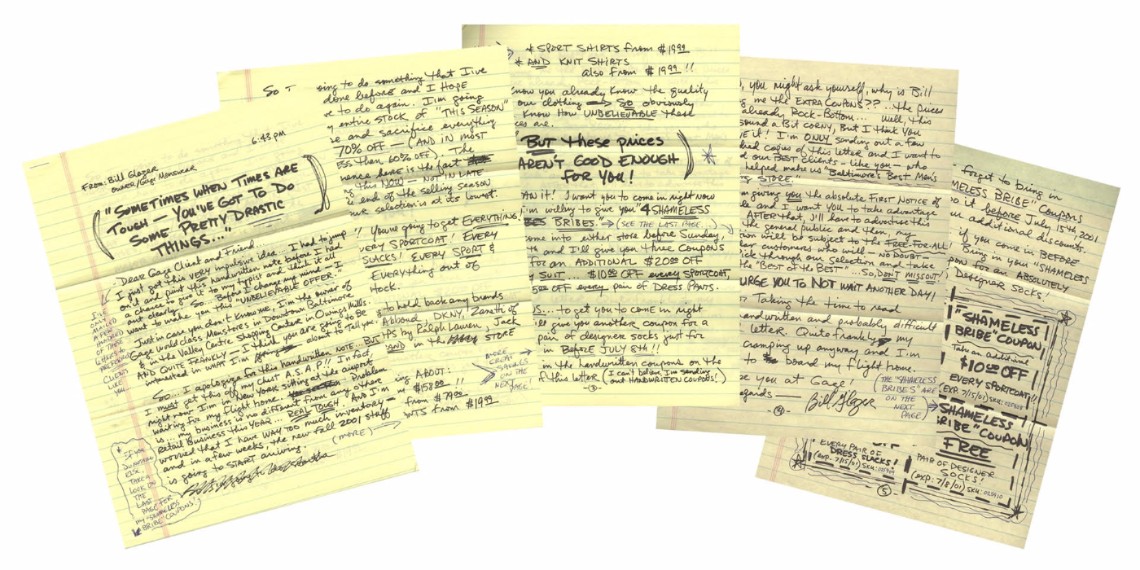 6:43 pm
From: Bill Glazer
owner/Gage Menswear
"SOMETIMES WHEN TIMES ARE
TOUGH — YOU'VE GOT TO DO
SOME PRETTY DRASTIC
THINGS..."
Dear Gage Client and Friend,
I just got this very impulsive idea. I had to jump
and to give it to my typist and think it all
out clearly. So... Before I change my mind I
want to make you this "UNBELIEVABLE OFFER."
Just in case you don't know me, I'm the owner of
Gage World class Menstores in Downtown Baltimore
& in the Valley Centre Shopping Center in Owings Mills.
AND QUITE FRANKLY — I think you are going to be
interested in what I'm about to tell you.
So... I apologize for this handwritten note... BUT
I must get this off my chest A.S.A.P!! In fact,
right now I'm in NEW YORK sitting at the airport
waiting for my flight home. My problem
is... my business is no different from any other
Retail Business this YEAR... REAL TOUGH! And I'm
worried that I have WAY TOO much inventory
and in a few weeks, the new fall 2001 stuff
is going to START arriving.
(MORE)
IF YOU
DO NOTHING
ELSE
TAKE A
LOOK ON
THE
LAST
PAGE FOR
my "SHAMELESS
BRIBE" COUPONS
So I
ing to do something that I've
done before and I HOPE
e to do again. I'm going
y entire STOCK of "THIS SEASON"
e and sacrifice everything
70% OFF — (AND IN MOST
ESS than 60% OFF). The
erence here is the fact
this NOW — NOT IN LATE
e end of the selling season
our selection is at its lowest.
You're going to get EVERYTHING.
VERY SPORTCOAT! EVERY
SLACKS! EVERY SPORT &
EVERYthing out of
tock.
to hold back any brands
Abboud, DKNY, Zanetti
ts by Ralph Lauren, Jack
AND in the STORE
ABOUT:
$158.00!!
from $79.99
RTS from $19.99
MORE
GREAT
SAVINGS
ON THE
NEXT
PAGE!
* SPORT SHIRTS from $19.99
* AND KNIT SHIRTS
also from $19.99!!
know you already know the quality
our clothing → SO obviously
know How UNBELIEVABLE these
ces are.
"BUT these prices
AREN'T GOOD ENOUGH
FOR YOU!
AN it! I want you to come in right now
I'm willing to give you "4 SHAMELESS
BES BRIBES. → (SEE THE LAST PAGE)
come into either store before Sunday,
and I'll give you three coupons
for an ADDITIONAL $20.00 OFF
y SUIT... $10.00 OFF every SPORTCOAT,
5.00 OFF every pair of DRESS PANTS.
S... to get you to come in right
I'll give you another coupon for a
pair of designer socks just for
in Before JULY 8th!!
in the handwritten coupons on the
f this letter (I can't believe I'm sending
out HANDWRITTEN COUPONS!)
-3-
, you might ask yourself, why is Bill
g me the EXTRA COUPONS??...the prices
already Rock-Bottom... Well, this
sound a Bit CORNY, But I think You
e it! I'm ONLY sending out a few
dred copies of this letter and I want to
d our BEST Clients — like you — who
helped make us "Baltimore's Best Men's
STORE."
m giving you the absolute FIRST NOTICE of
le and I want you to take advantage
AFTER that, I'll have to advertise this
the general public and then, my
on will be subject to the FREE-FOR-ALL
her customers who will — NO DOUBT —
ick through our selection and take
the "BEST of the BEST"... So, DON'T MISS OUT!
URGE YOU TO NOT WAIT ANOTHER DAY!
r Taking the time to read
andwritten and probably difficult
letter. Quite frankly my
cramping up anyway and I'm
to board my flight home.
e you at Gage!
egards —
Bill Glazer
(THE "SHAMELESS
BRIBE'S" ARE
ON THE
NEXT
PAGE)
-4-
forget to bring in
MELESS BRIBE" Coupons
so it before July 15th, 2001
our additional discounts.
if you come in BEFORE
Bring in your "SHAMELESS
pon for an ABSOLUTELY
Designer Socks!
"SHAMELESS
BRIBE" COUPON
Take an additional
$10.00 OFF
EVERY SPORTCOAT!
(EXP. 7/15/01)
"SHAMELESS
BRIBE" COUPON
FREE
PAIR OF DESIGNER
SOCKS!
(exp: 7/8/01)
OFF
EVERY PAIR OF
DRESS SLACKS!
(exp. 7/15/01)
5